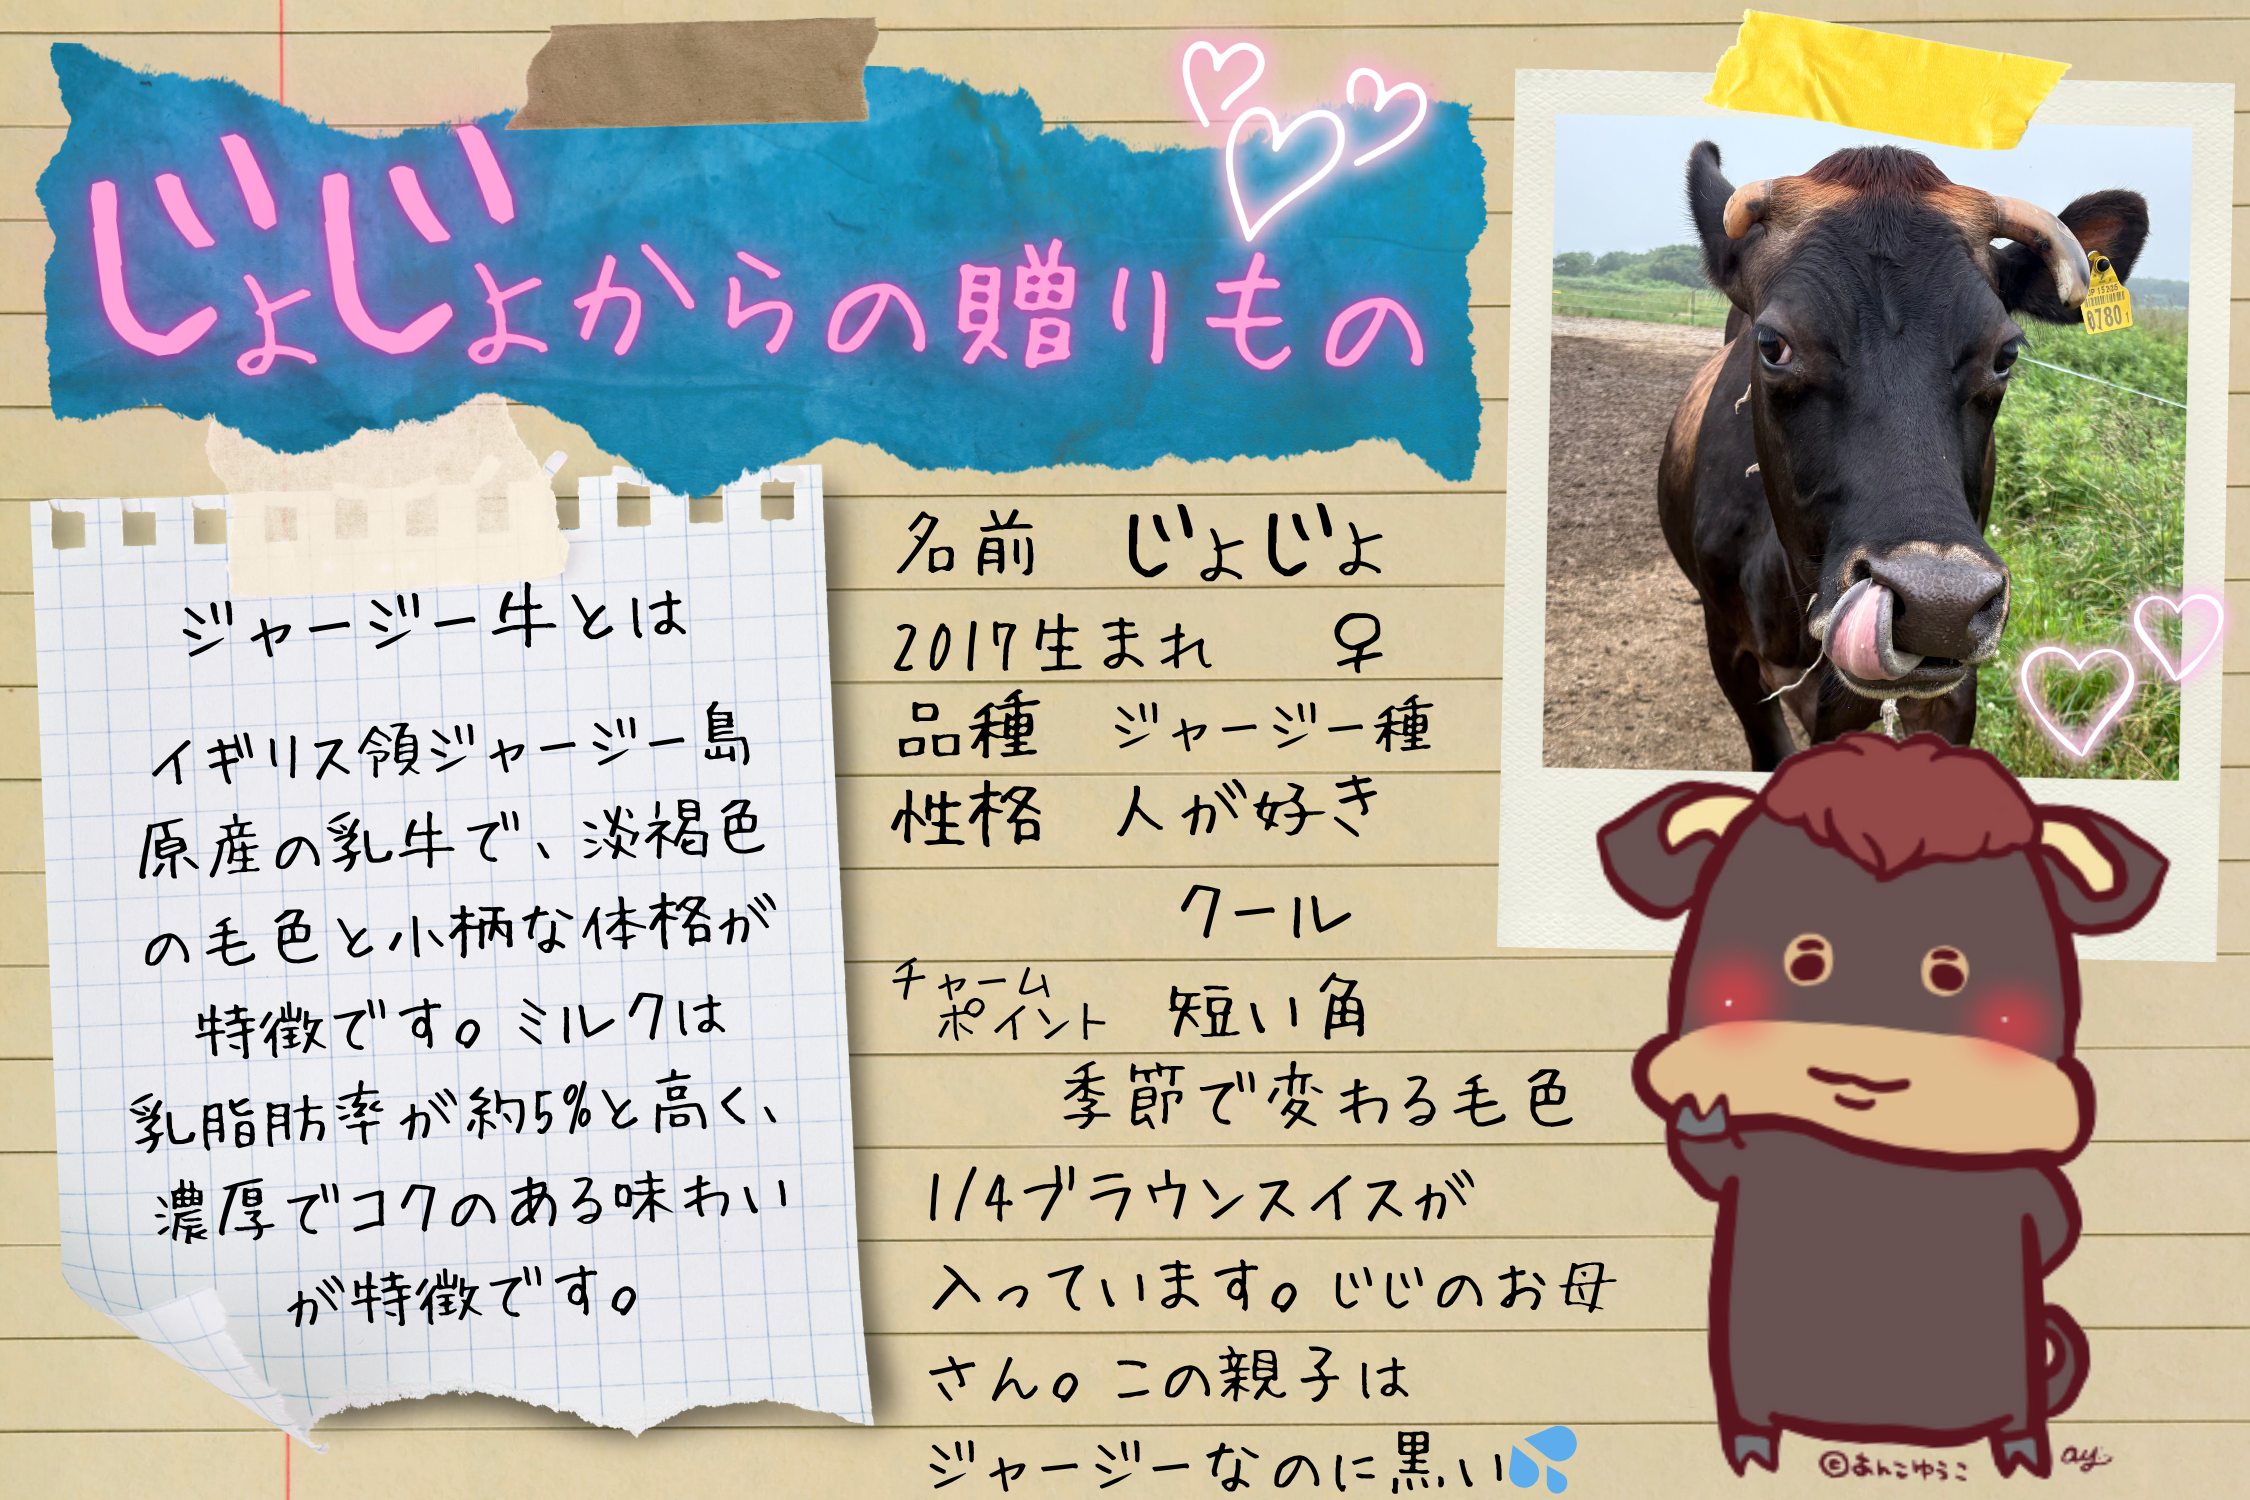 じょじょからの贈りもの
ジャージー牛とは
イギリス領ジャージー島
原産の乳牛で、淡褐色
の毛色と小柄な体格が
特徴です。ミルクは
乳脂肪率が約5%と高く、
濃厚でコクのある味わい
が特徴です。
名前 じょじょ
2017生まれ ♀
品種 ジャージー種
性格 人が好き
クール
チャーム
ポイント 短い角
季節で変わる毛色
1/4ブラウンスイスが
入っています。じじのお母
さん。この親子は
ジャージーなのに黒い💦
0780
©あんこゆうこ
ay